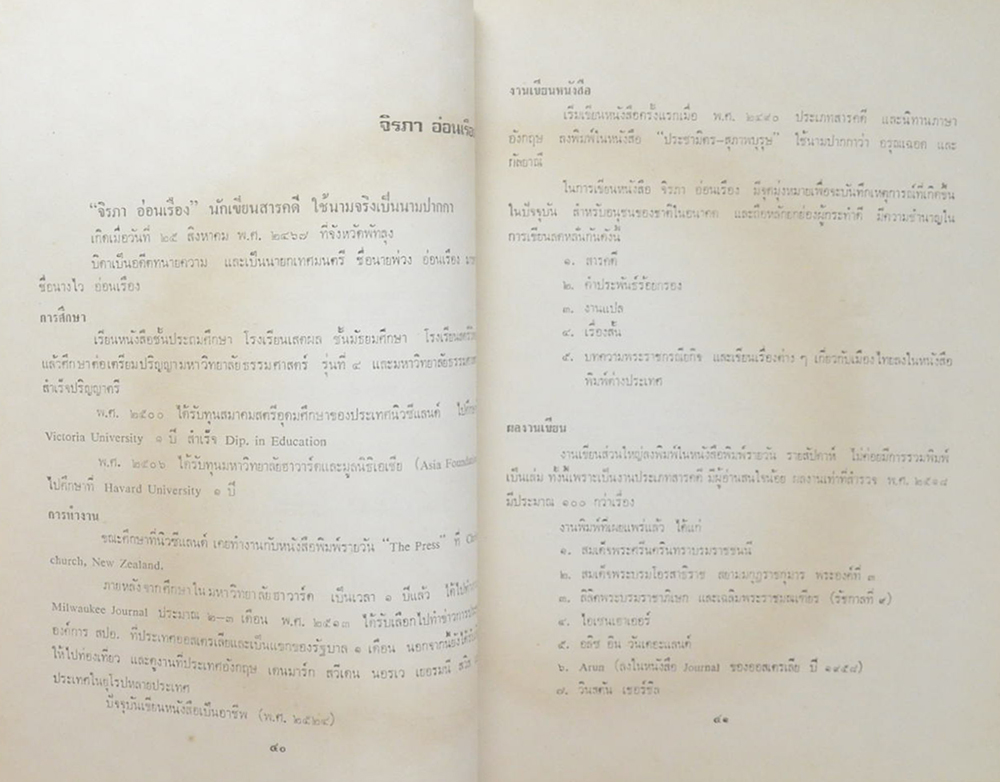 จิรภา อ่อนเรือง
"จิรภา อ่อนเรือง" นักเขียนสารคดี ใช้นามจริงเป็นนามปากกา
เกิดเมื่อวันที่ ๒๕ สิงหาคม พ.ศ. ๒๔๖๗ ที่จังหวัดพัทลุง
บิดาเป็นอดีตทนายความ และเป็นนายกเทศมนตรี ชื่อนายพ่วง อ่อนเรือง
ชื่อนางไว อ่อนเรือง
การศึกษา
เรียนหนังสือชั้นประถมศึกษา โรงเรียนเสตผล ชั้นมัธยมศึกษา
แล้วศึกษาต่อเตรียมปริญญามหาวิทยาลัยธรรมศาสตร์ รุ่นที่ ๔ และมหาวิทยาลัยธรรมศาส
สำเร็จปริญญาตรี
พ.ศ. ๒๕๐๐ ได้รับทุนสมาคมสตรีอุดมศึกษาของประเทศนิวซีแลนด์ ไปศึกษา
Victoria University ๑ ปี สำเร็จ Dip. in Education
พ.ศ. ๒๕๐๖ ได้รับทุนมหาวิทยาลัยฮาวาร์ดและมูลนิธิเอเซีย (Asia Foundation
ไปศึกษาที่ Havard University ๑ ปี
การทำงาน
ขณะศึกษาที่นิวซีแลนด์ เคยทำงานกับหนังสือพิมพ์รายวัน "The Press" ที่
church, New Zealand.
ภายหลังจากศึกษาในมหาวิทยาลัยฮาวาร์ด เป็นเวลา ๑ ปีแล้ว
Milwaukee Journal ประมาณ ๒-๓ เดือน พ.ศ. ๒๕๑๓ ได้รับเลือกไปทำข่าวการประ
องค์การ สปอ. ที่ประเทศออสเตรเลียและเป็นแขกของรัฐบาล ๑ เดือน นอกจากนี้ยังได้รับ
ให้ไปท่องเที่ยว และดูงานที่ประเทศอังกฤษ เดนมาร์ก สวีเดน นอรเว เยอรมนี สวิส
ประเทศในยุโรปหลายประเทศ
ปัจจุบันเขียนหนังสือเป็นอาชีพ (พ.ศ. ๒๕๒๔)
๔๐
งานเขียนหนังสือ
เริ่มเขียนหนังสือครั้งแรกเมื่อ พ.ศ. ๒๔๙๐ ประเภทสารคดี และนิทานภาษา
อังกฤษ ลงพิมพ์ในหนังสือ "ประชามิตร-สุภาพบุรุษ" ใช้นามปากกาว่า อรุณฉอด และ
กัลยาณี
ในการเขียนหนังสือ จิรภา อ่อนเรือง มีจุดมุ่งหมายเพื่อจะบันทึกเหตุการณ์ที่เกิดขึ้น
ในปัจจุบัน สำหรับอนุชนของชาติในอนาคต และถือหลักยกย่องผู้กระทำดี มีความชำนาญใน
การเขียนลดหลั่นกันดังนี้
๑. สารคดี
๒. คำประพันธ์ร้อยกรอง
๓. งานแปล
๔. เรื่องสั้น
๕. บทความพระราชกรณียกิจ และเขียนเรื่องต่าง ๆ เกี่ยวกับเมืองไทยลงในหนังสือ
พิมพ์ต่างประเทศ
ผลงานเขียน
งานเขียนส่วนใหญ่ลงพิมพ์ในหนังสือพิมพ์รายวัน รายสัปดาห์ ไม่ค่อยมีการรวมพิมพ์
เป็นเล่ม ทั้งนี้เพราะเป็นงานประเภทสารคดี มีผู้อ่านสนใจน้อย ผลงานเท่าที่สำรวจ พ.ศ. ๒๕๑๘
มีประมาณ ๑๐๐ กว่าเรื่อง
งานพิมพ์ที่เผยแพร่แล้ว ได้แก่
๑. สมเด็จพระศรีนครินทราบรมราชชนนี
๒. สมเด็จพระบรมโอรสาธิราช สยามมกุฎราชกุมาร พระองค์ที่ ๓
๓. ลิลิตพระบรมราชาภิเษก และเฉลิมพระราชมณเฑียร (รัชกาลที่ ๙)
๔. ไอเซนเฮาเออร์
๕. อลิซ อิน วันเดอะแลนด์
๖. Arun (ลงในหนังสือ Journal ของออสเตรเลีย ปี ๑๙๕๘)
๗. วินสตัน เชอร์ชิล
๔๑